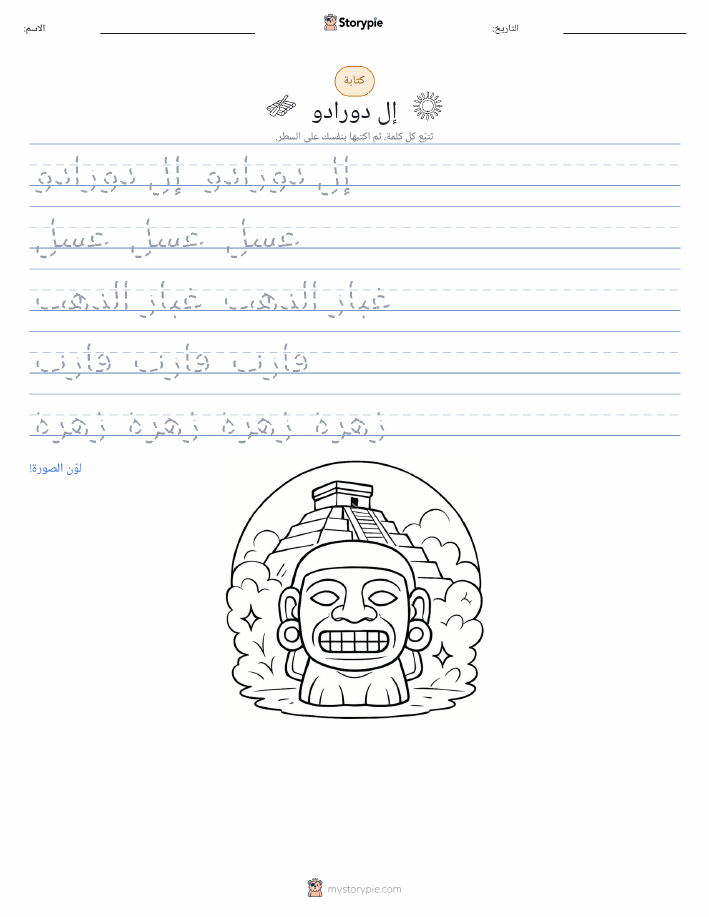 Storypie
الاسم: التاريخ:
كتابة
إل دورادو
تتبّع كل كلمة، ثم اكتبها بنفسك على السطر.
إل دورادو إل دورادو
عسل عسل عسل
غبار الذهب غبار الذهب
قارب قارب قارب
زهرة زهرة زهرة زهرة
لوّن الصورة!
mystorypie.com